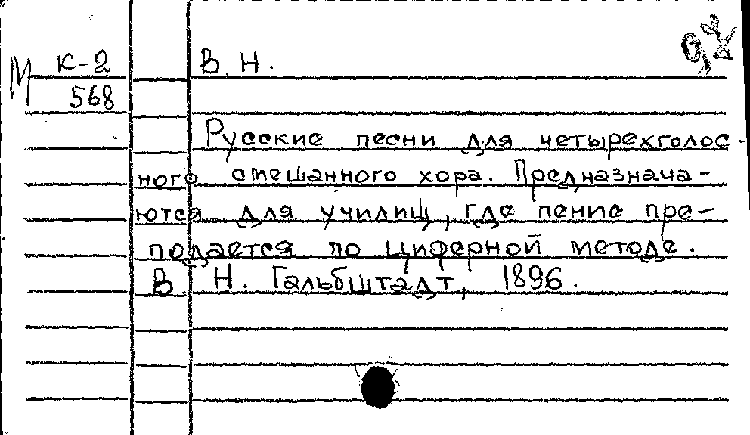 М К-2 В. Н.
568
Русские песни для четырехголос-
ного смешанного хора. Предназнача-
ются для училищ, где пение пре-
подается по циферной методе.
В. Н. Гальбштадт, 1896.